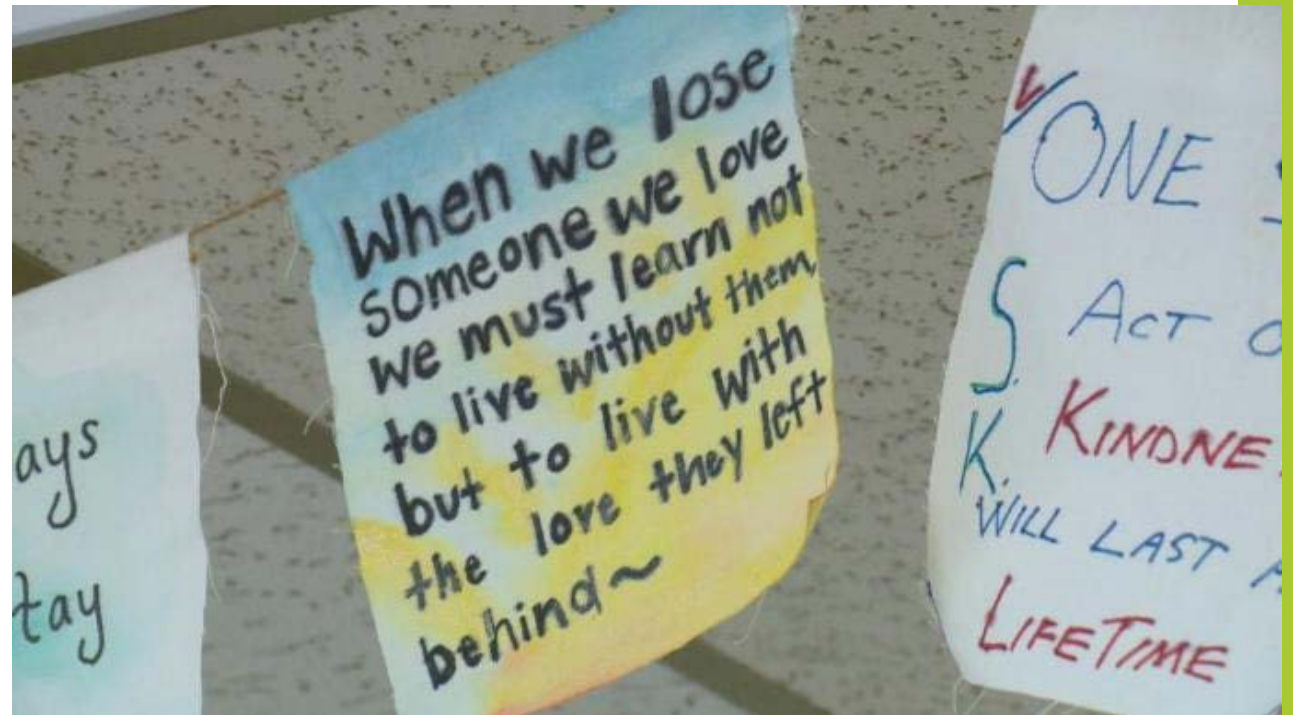 When we lose
someone we love
we must learn not
to live without them,
but to live with
the love they left
behind~
ONE
S.
ACT
K.
KINDNE
WILL LAST
LIFETIME
ays
tay